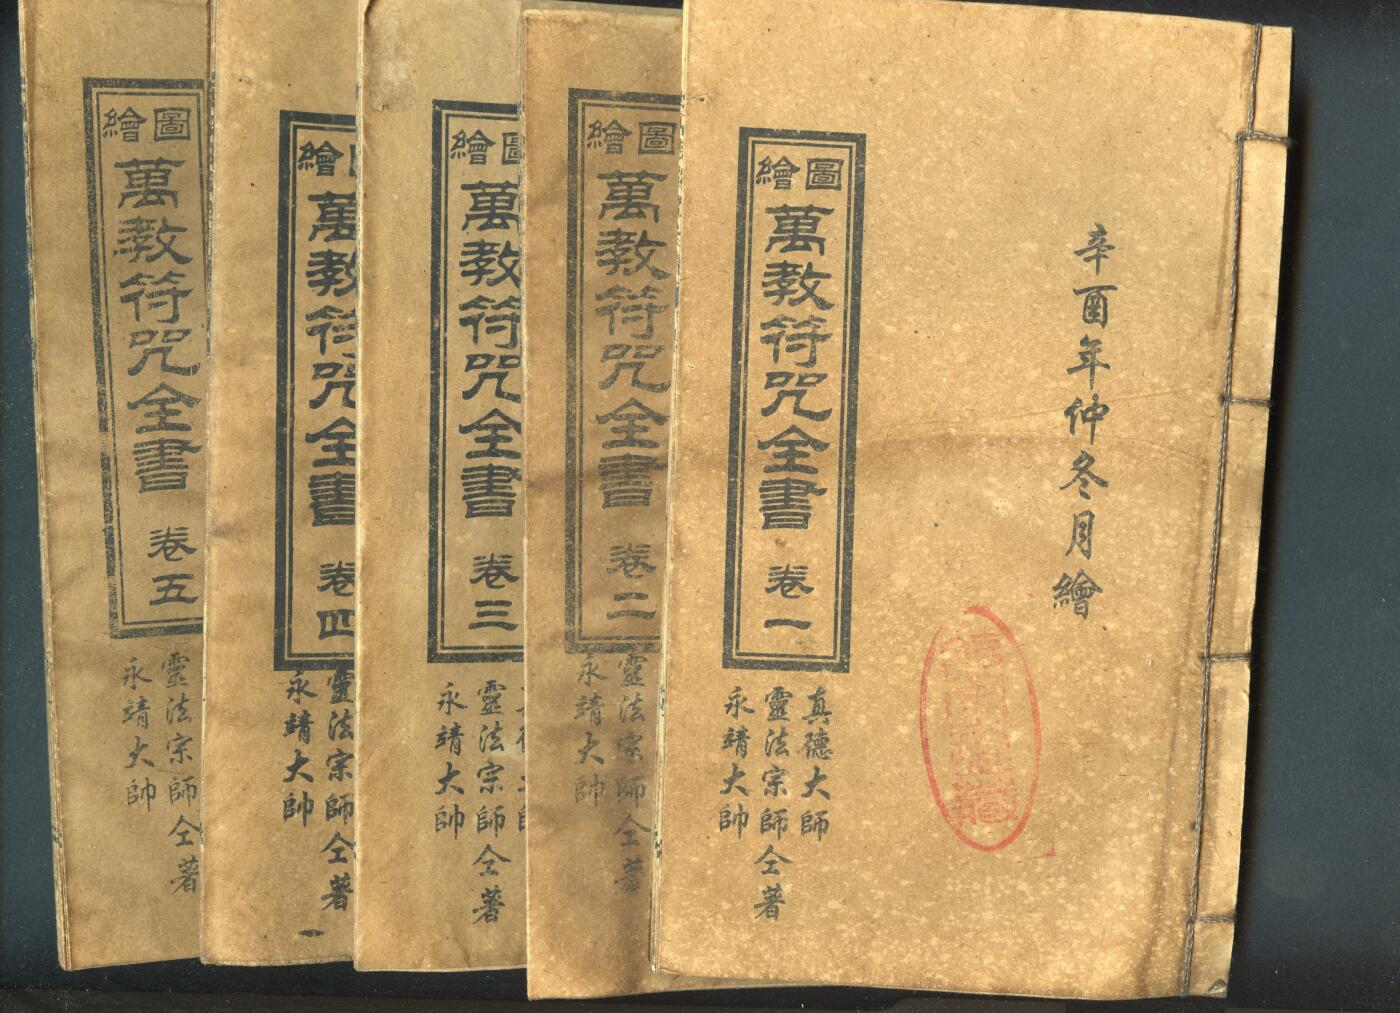 辛酉年仲冬月繪
圖繪
萬教符咒全書 卷一
真德大師
靈法宗師仝著
永靖大帥
圖繪
萬教符咒全書 卷二
靈法宗師仝著
永靖大帥
繪
萬教符咒全書 卷三
靈法宗師仝著
永靖大帥
繪
萬教符咒全書 卷四
靈法宗師仝著
永靖大帥
圖繪
萬教符咒全書 卷五
靈法宗師仝著
永靖大帥